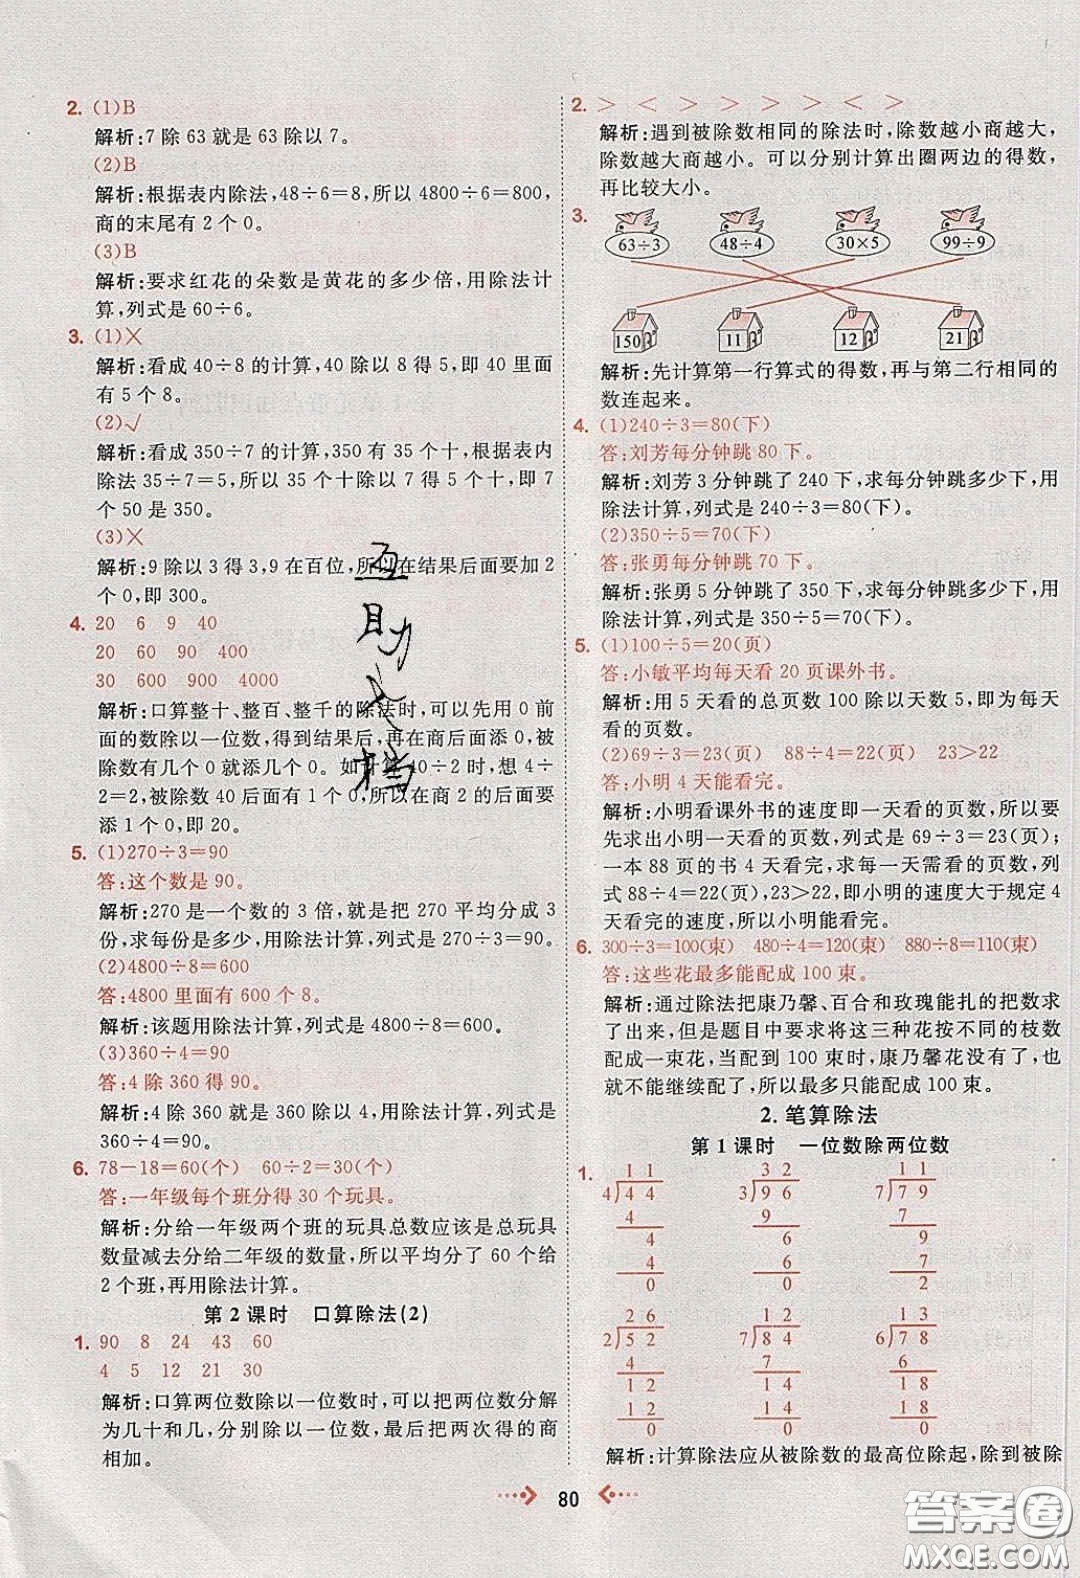 2. (1)B
解析:7 除 63 就是 63 除以 7。
(2)B
解析:根据表内除法,48÷6=8,所以 4800÷6=800,
商的末尾有 2 个 0。
(3)B
解析:要求红花的朵数是黄花的多少倍,用除法计
算,列式是 60÷6。
3. (1)×
解析:看成 40÷8 的计算,40 除以 8 得 5,即 40 里面
有 5 个 8。
(2)√
解析:看成 350÷7 的计算,350 有 35 个十,根据表内
除法 35÷7=5,所以 35 个十除以 7 得 5 个十,即 7
个 50 是 350。
(3)×
解析:9 除以 3 得 3,9 在百位,所以在结果后面要加 2
个 0,即 300。
4. 20 6 9 40
20 60 90 400
30 600 900 4000
解析:口算整十、整百、整千的除法时,可以先用 0 前
面的数除以一位数,得到结果后,再在商后面添 0,被
除数有几个 0 就添几个 0。如计算 40÷2 时,想 4÷
2=2,被除数 40 后面有 1 个 0,所以在商 2 的后面要
添 1 个 0,即 20。
5. (1)270÷3=90
答:这个数是 90。
解析:270 是一个数的 3 倍,就是把 270 平均分成 3
份,求每份是多少,用除法计算,列式是 270÷3。
(2)4800÷8=600
答:4800 里面有 600 个 8。
解析:该题用除法计算,列式是 4800÷8=600。
(3)360÷4=90
答:4 除 360 得 90。
解析:4 除 360 就是 360 除以 4,用除法计算,列式是
360÷4=90。
6. 78-18=60(个) 60÷2=30(个)
答:一年级每个班分得 30 个玩具。
解析:分给一年级两个班的玩具总数应该是总玩具
数量减去分给二年级的数量,所以平均分了 60 个给
2 个班,再用除法计算。
第 2 课时 口算除法(2)
1. 90 8 24 43 60
4 5 12 21 30
解析:口算两位数除以一位数时,可以把两位数分解
为几十和几,分别除以一位数,最后把两次得的商
相加。
2. > < > > > > < >
解析:遇到被除数相同的除法时,除数越小商越大,
除数越大商越小。可以分别计算出圈两边的得数,
再比较大小。
3.
63÷3 48÷4 30×5 99÷9
150 11 12 21
解析:先计算第一行算式的得数,再与第二行相同的
数连起来。
4. (1)240÷3=80(下)
答:刘芳每分钟跳 80 下。
解析:刘芳 3 分钟跳了 240 下,求每分钟跳多少下,用
除法计算,列式是 240÷3=80(下)。
(2)350÷5=70(下)
答:张勇每分钟跳 70 下。
解析:张勇 5 分钟跳了 350 下,求每分钟跳多少下,用
除法计算,列式是 350÷5=70(下)。
5. (1)100÷5=20(页)
答:小敏平均每天看 20 页课外书。
解析:用 5 天看的总页数 100 除以天数 5,即为每天
看的页数。
(2)69÷3=23(页) 88÷4=22(页) 23>22
答:小明 4 天能看完。
解析:小明看课外书的速度即一天看的页数,所以要
先求出小明一天看的页数,列式是 69÷3=23(页);
一本 88 页的书 4 天看完,求每一天需看的页数,列
式 88÷4=22(页),23>22,即小明的速度大于规定 4
天看完的速度,所以小明能看完。
6. 300÷3=100(束) 480÷4=120(束) 880÷8=110(束)
答:这些花最多能配成 100 束。
解析:通过除法把康乃馨、百合和玫瑰能扎的把数求
了出来,但是题目中要求将这三种花按不同的枝数
配成一束花,当配到 100 束时,康乃馨花没有了,也
就不能继续配了,所以最多只能配成 100 束。
2. 笔算除法
第 1 课时 一位数除两位数
1.
11 32 11
4)44 3)96 7)79
4 9 7
4 6 9
4 6 7
0 0 2
26 12 13
2)52 7)84 6)78
4 7 6
12 14 18
12 14 18
0 0 0
解析:计算除法应从被除数的最高位除起,除到被除
80
互
助
文
档
答案圈
MXQE.COM